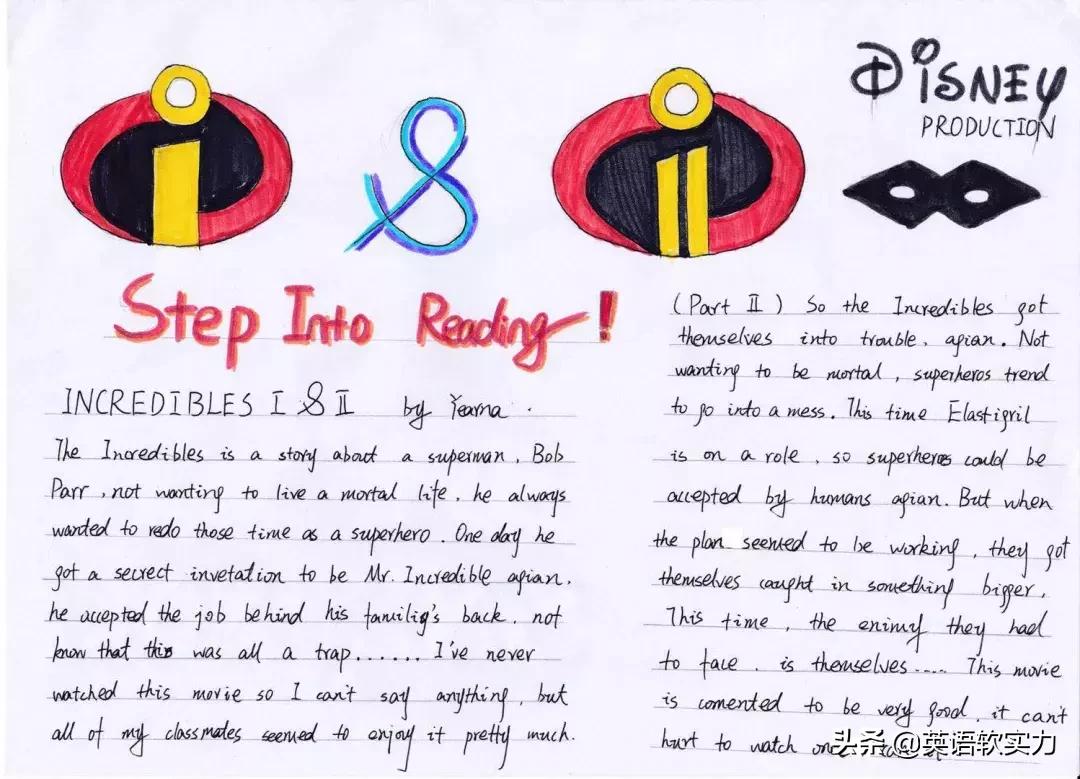 i & ii
DISNEY
PRODUCTION
Step Into Reading !
INCREDIBLES I & II by Yearna .
The Incredibles is a story about a superman, Bob
Parr, not wanting to live a mortal life, he always
wanted to redo those time as a superhero. One day he
got a secrect invetation to be Mr. Incredible agian,
he accepted the job behind his familig's back, not
know that this was all a trap....... I've never
watched this movie so I can't say anything, but
all of my classmates seemed to enjoy it pretty much.
(Part II) So the Incredibles got
themselves into trouble, agian. Not
wanting to be mortal, superheros trend
to go into a mess. This time Elastigril
is on a role, so superheros could be
accepted by humans agian. But when
the plan seemed to be working, they got
themselves caught in something bigger.
This time, the enimy they had
to face, is themselves.... This movie
is comented to be very good, it can't
hurt to watch
头条 @英语软实力